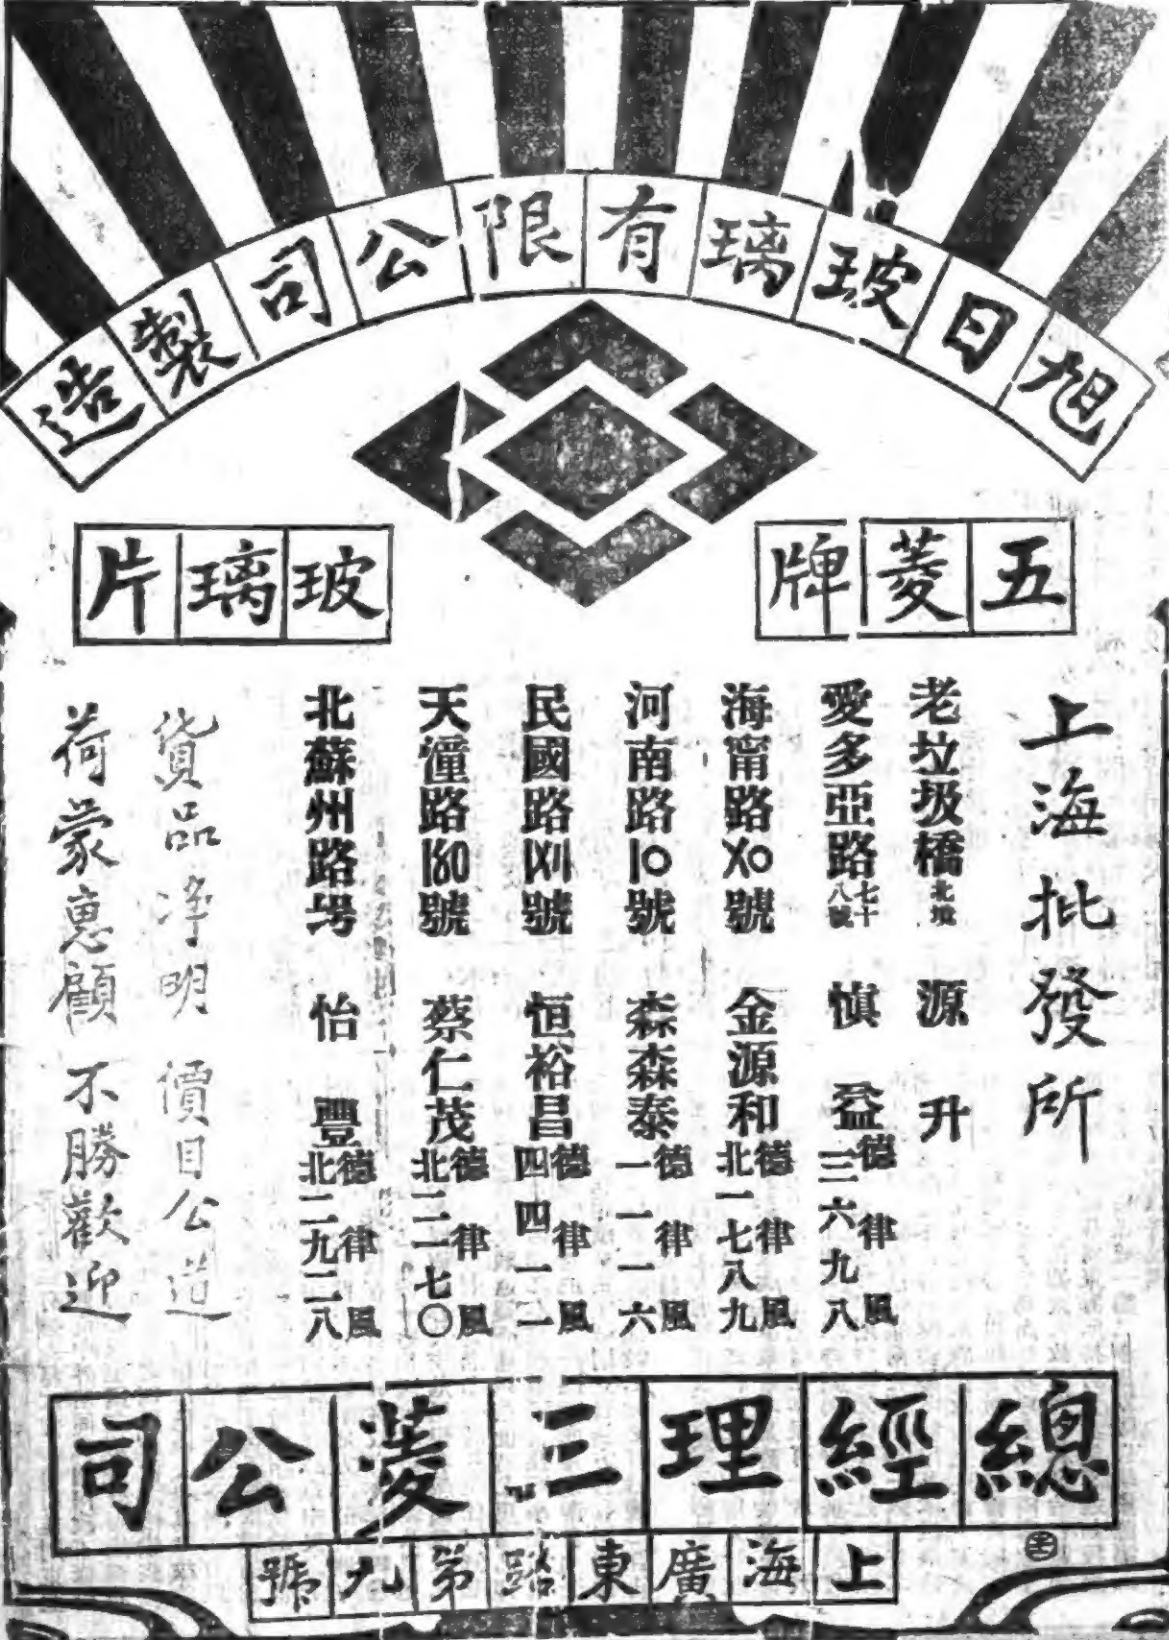 旭日玻璃有限公司製造
五菱牌
玻璃片
上海批發所
老垃圾橋北堍 源升
愛多亞路七十八號 慎益 德律風三六九八
海甯路X0號 金源和 德律風北一七八九
河南路10號 森森泰 德律風一一一六
民國路號 恒裕昌 德律風四四一二
天潼路180號 蔡仁茂 德律風北二一七〇
北蘇州路 怡豐 德律風北二九二八
貨品淨明 價目公道
荷蒙惠顧 不勝歡迎
總經理三菱公司
上海廣東路第九號